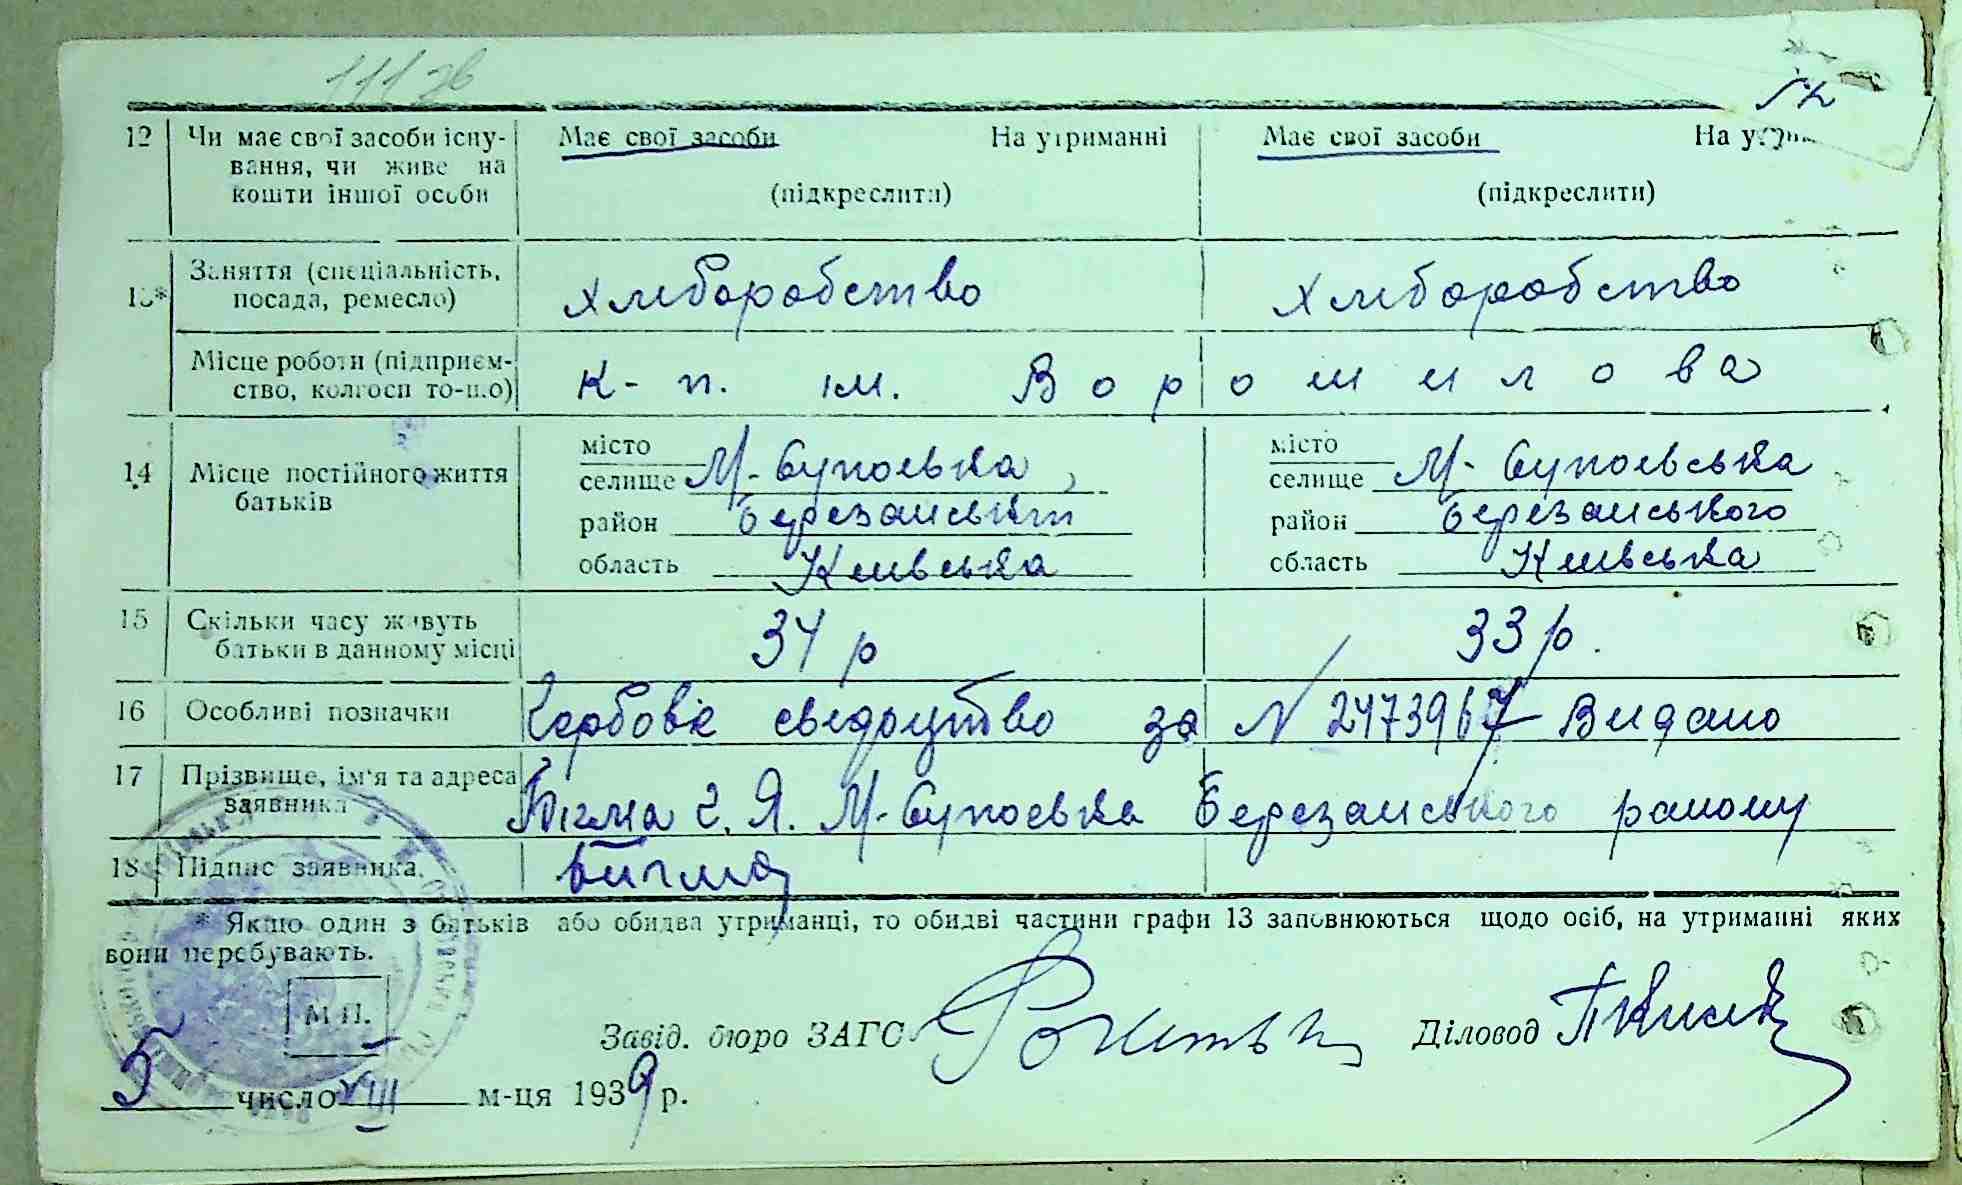 111 зв
12 Чи має свої засоби існу- Має свої засоби На утриманні Має свої засоби
вання, чи живе на
кошти іншої особи (підкреслити) (підкреслити)
Заняття (спеціальність,
13* посада, ремесло) хліборобство хліборобство
Місце роботи (підприєм-
ство, колгосп то-що) к-п. ім. Ворошилова
14 Місце постійного життя батьків
місто місто
селище М-Супоєвка, селище М-Супоєвська
район Березанський район Березанського
область Київська область Київська
15 Скільки часу живуть
батьки в данному місці 34 р 33 р.
16 Особливі позначки Гербове свідоцтво за N 2473967 Видано
17 Прізвище, ім'я та адреса
заявника Бігма Г. Я. М-Супоєвка Березанського району
18 Підпис заявника. Бигма
* Якщо один з батьків або обидва утриманці, то обидві частини графи 13 заповнюються щодо осіб, на утриманні яких
вони перебувають.
М.П.
Завід. бюро ЗАГС Діловод
5 число VIII м-ця 1939 р.